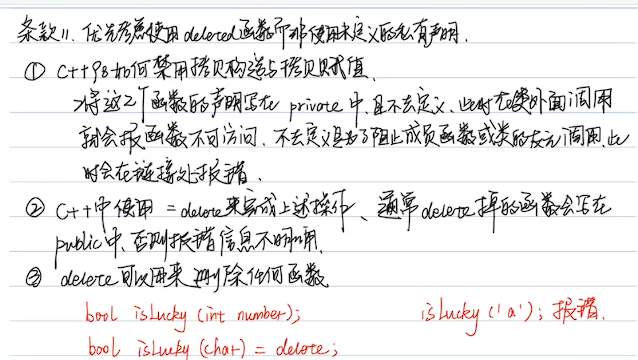 条款11. 优先考虑使用deleted函数而非使用未定义的私有声明.
① C++98如何禁用拷贝构造与拷贝赋值.
>将这2个函数的声明写在 private 中,且不去定义、此时在类外面调用
就会报函数不可访问、不去定义是为了阻止成员函数或类的友元调用,此
时会在链接处报错.
② C++中使用 =delete来完成上述操作、通常delete掉的函数会写在
public中,否则报错信息不明确.
③ delete可以用来删除任何函数
bool isLucky (int number); isLucky ('a'); 报错.
bool isLucky (char) = delete;